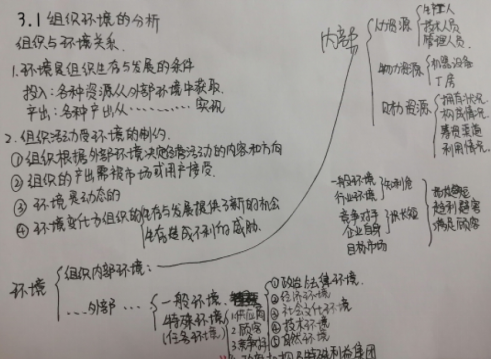 3.1 组织环境的分析
组织与环境关系.
1.环境是组织生存与发展的条件
投入:各种资源从外部环境中获取
产出:各种产出从…………实现
2.组织活动受环境的制约.
①组织根据外部环境决定活动的内容和方向
②组织的产出需被市场或用户接受.
③环境是动态的
④环境变化为组织的生存与发展提供了新的机会
生存造成不利的威胁.
环境
组织内部环境:
…外部…
一般环境.
特殊环境
(任务环境)
1.供应商
2.顾客
3.竞争对手
①政治法律环境.
②经济环境
③社会文化环境
④技术环境
⑤自然环境
内部
人力资源
生产人
技术人员
管理人员.
物力资源
机器设备
厂房
财力资源
拥有状况.
构成情况.
筹资渠道
利用情况.
一般环境
行业环境
知利危
竞争对手
企业自身
扬长避短
目标市场
趋利避害
满足顾客
特殊利益集团